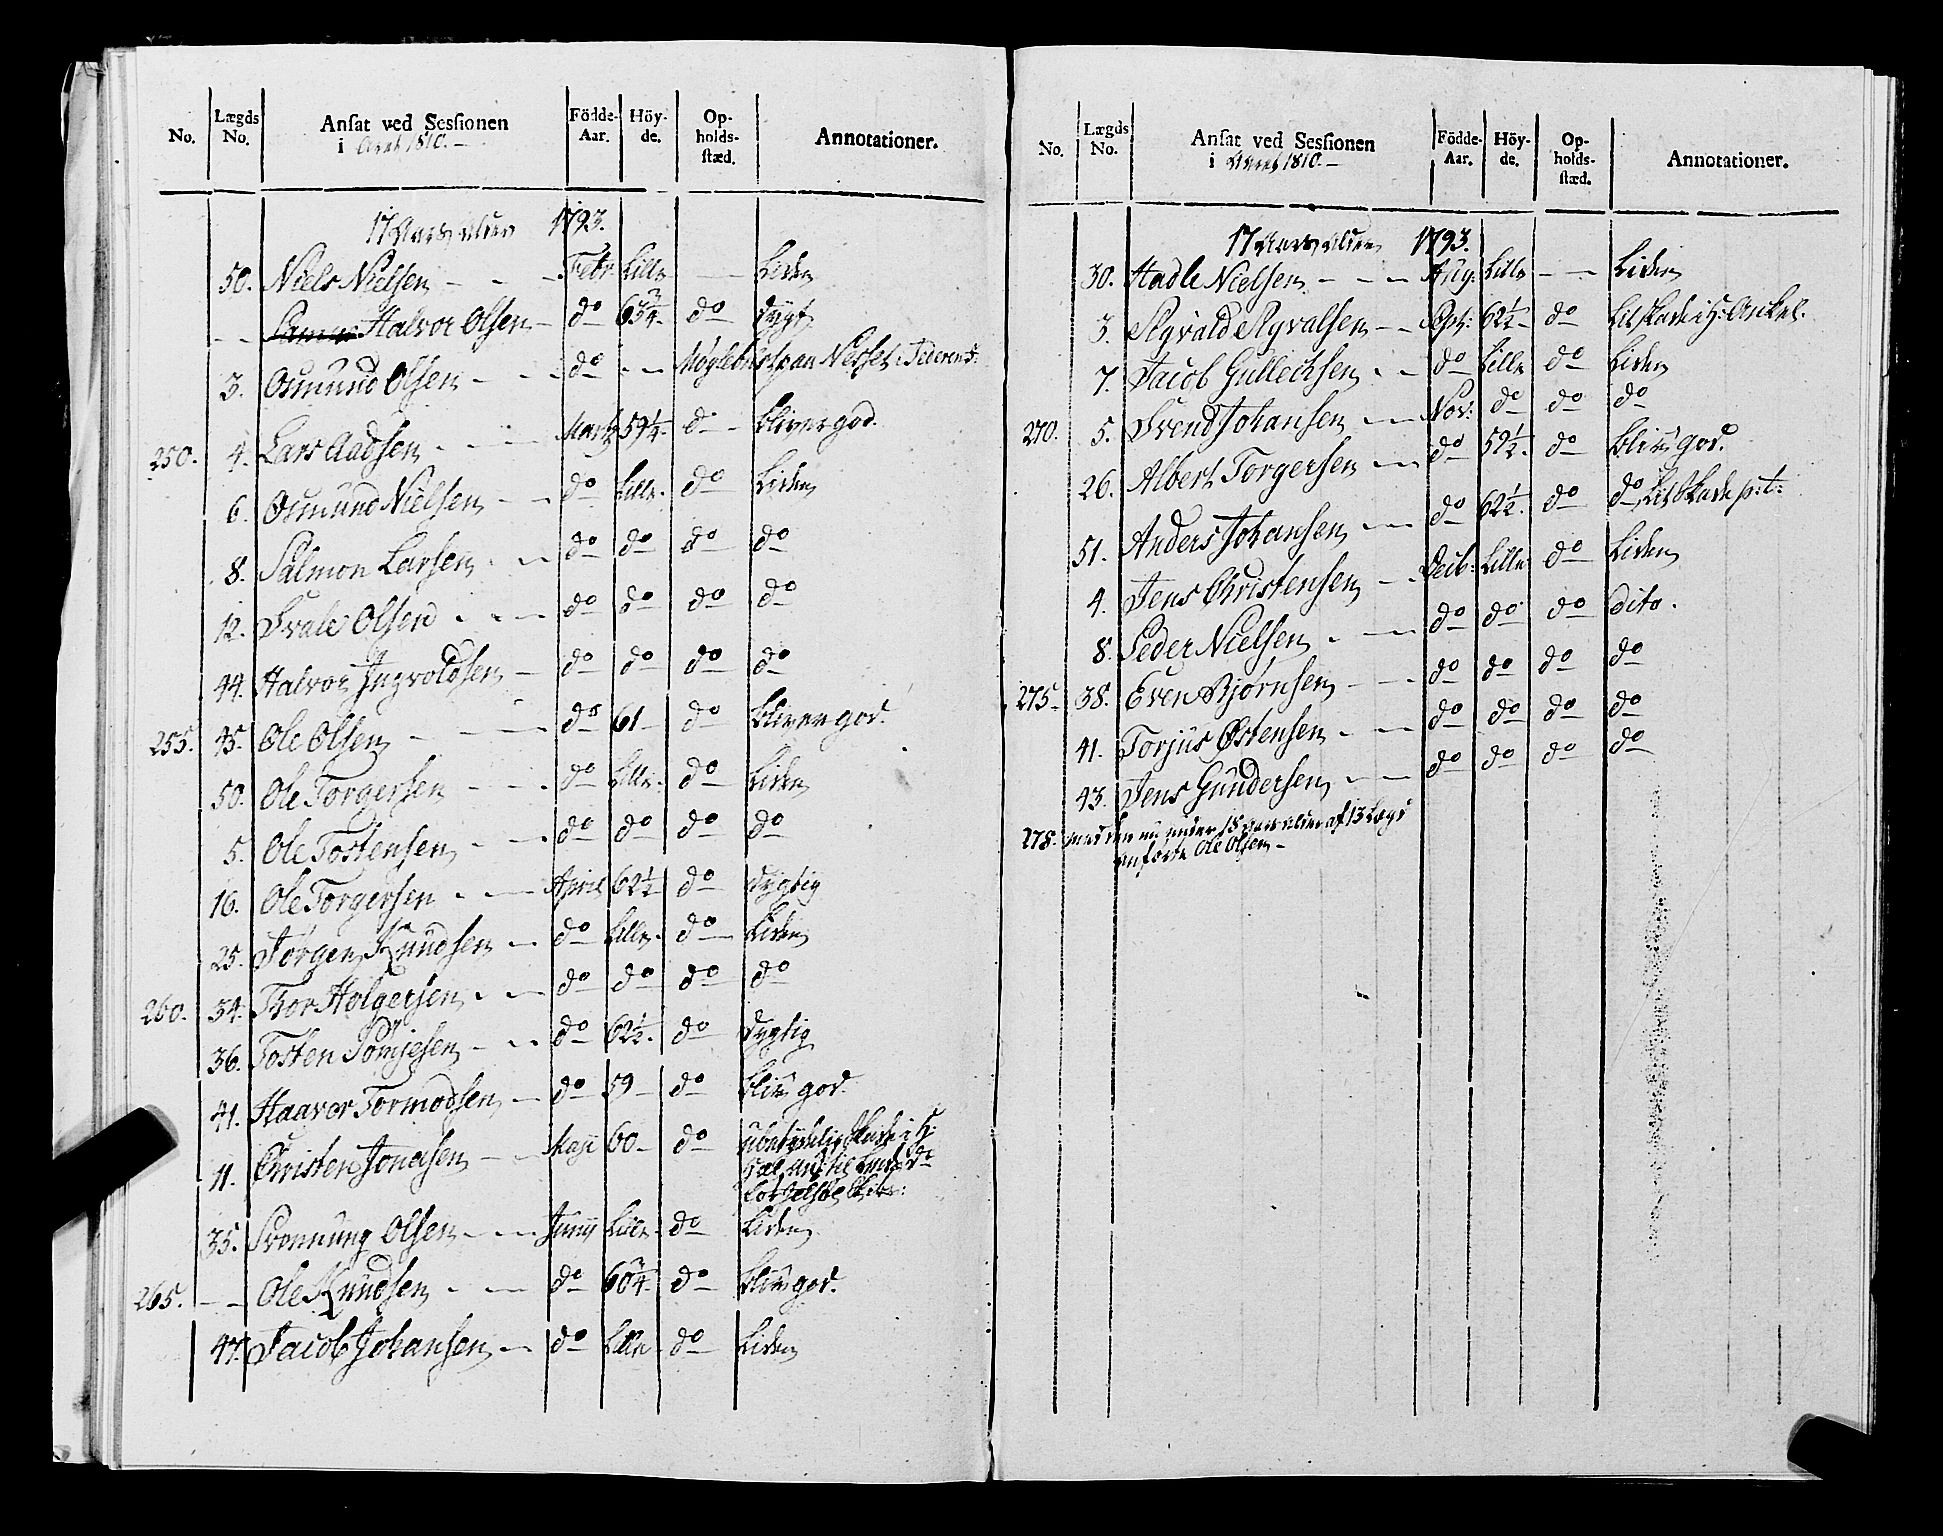 No. Lægds No. Ansat ved Sessionen i Aaret 1810. Födde-Aar. Höy-de. Op-holds-stæd. Annotationer.
17 Aars Alder 1793.
50. Niels Nielsen - - - Febr. Lille - - Liden
- - Halvor Olsen - do 63 3/4 do dygt
3. Osmund Olsen - - - do - -
250. 4. Lars Aadsen - - - Marti 59 1/4 do - bliver god.
6. Osmund Nielsen - - do Lille. do Liden
8. Salmon Larsen - - do do do do
12. Svale Olsen - - - do do do do
44. Halvor Ingvoldsen - do do do do
255. 45. Ole Olsen - - - do 61 - do bliver god.
50. Ole Torgersen - - - do Lille. do Liden
5. Ole Tostensen - - do do do do
16. Ole Torgersen - - April 62 1/2 do dygtig
25. Jørgen Knudsen - do Lille. do - Liden
260. 34. Thor Holgersen - - do do do do
36. Tosten Somjesen - - do 62 1/2. do dygtig
41. Haavor Tormodsen - do 59 - do bliv god.
11. Christen Jonasen - - Maji 60 - do ubetydelig Skade i H:
35. Svonnung Olsen - - Junij Lille - do Liden
265. - - Ole Knudsen - - do 60 1/4 do bliv god.
47. Jacob Johansen - do Lille do Liden
No. Lægds No. Ansat ved Sessionen i Aaret 1810. - Födde-Aar. Höy-de. Op-holds-stæd. Annotationer.
17 Aars Alder 1793.
30. Hadle Nielsen - - - Aug: Lille - - Liden
3. Sigvald Sigvalsen - - Sept: 62 1/2 - do Lit Skade i H: Ankel.
7. Jacob Gullechsen - - do Lille do Liden
270. 5. Svend Johansen - - Nov: do do do
26. Albert Torgersen - - do 59 1/2. do bliv god.
51. Anders Johansen - - do 62 1/2. do do, Lit Skade p: t:
4. Jens Christensen - - Decb: Lille do Liden
8. Peder Nielsen - - do do do dito.
275. 38. Even Bjørnsen - - do do do do
41. Torjus Østensen - - do do do do
43. Jens Gundersen - - do do do do
278. med den nu under 18 Aars Alder af 13 Lægd
anførte Ole Olsen -